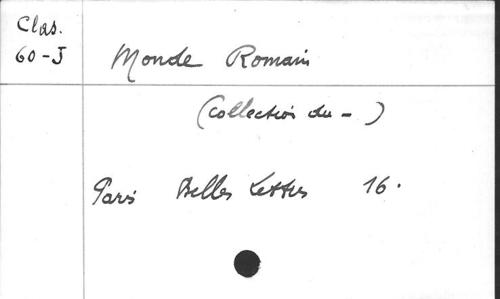 Clas.
60-J
Monde Romain
(Collection du - )
Paris Belles Lettres 16.